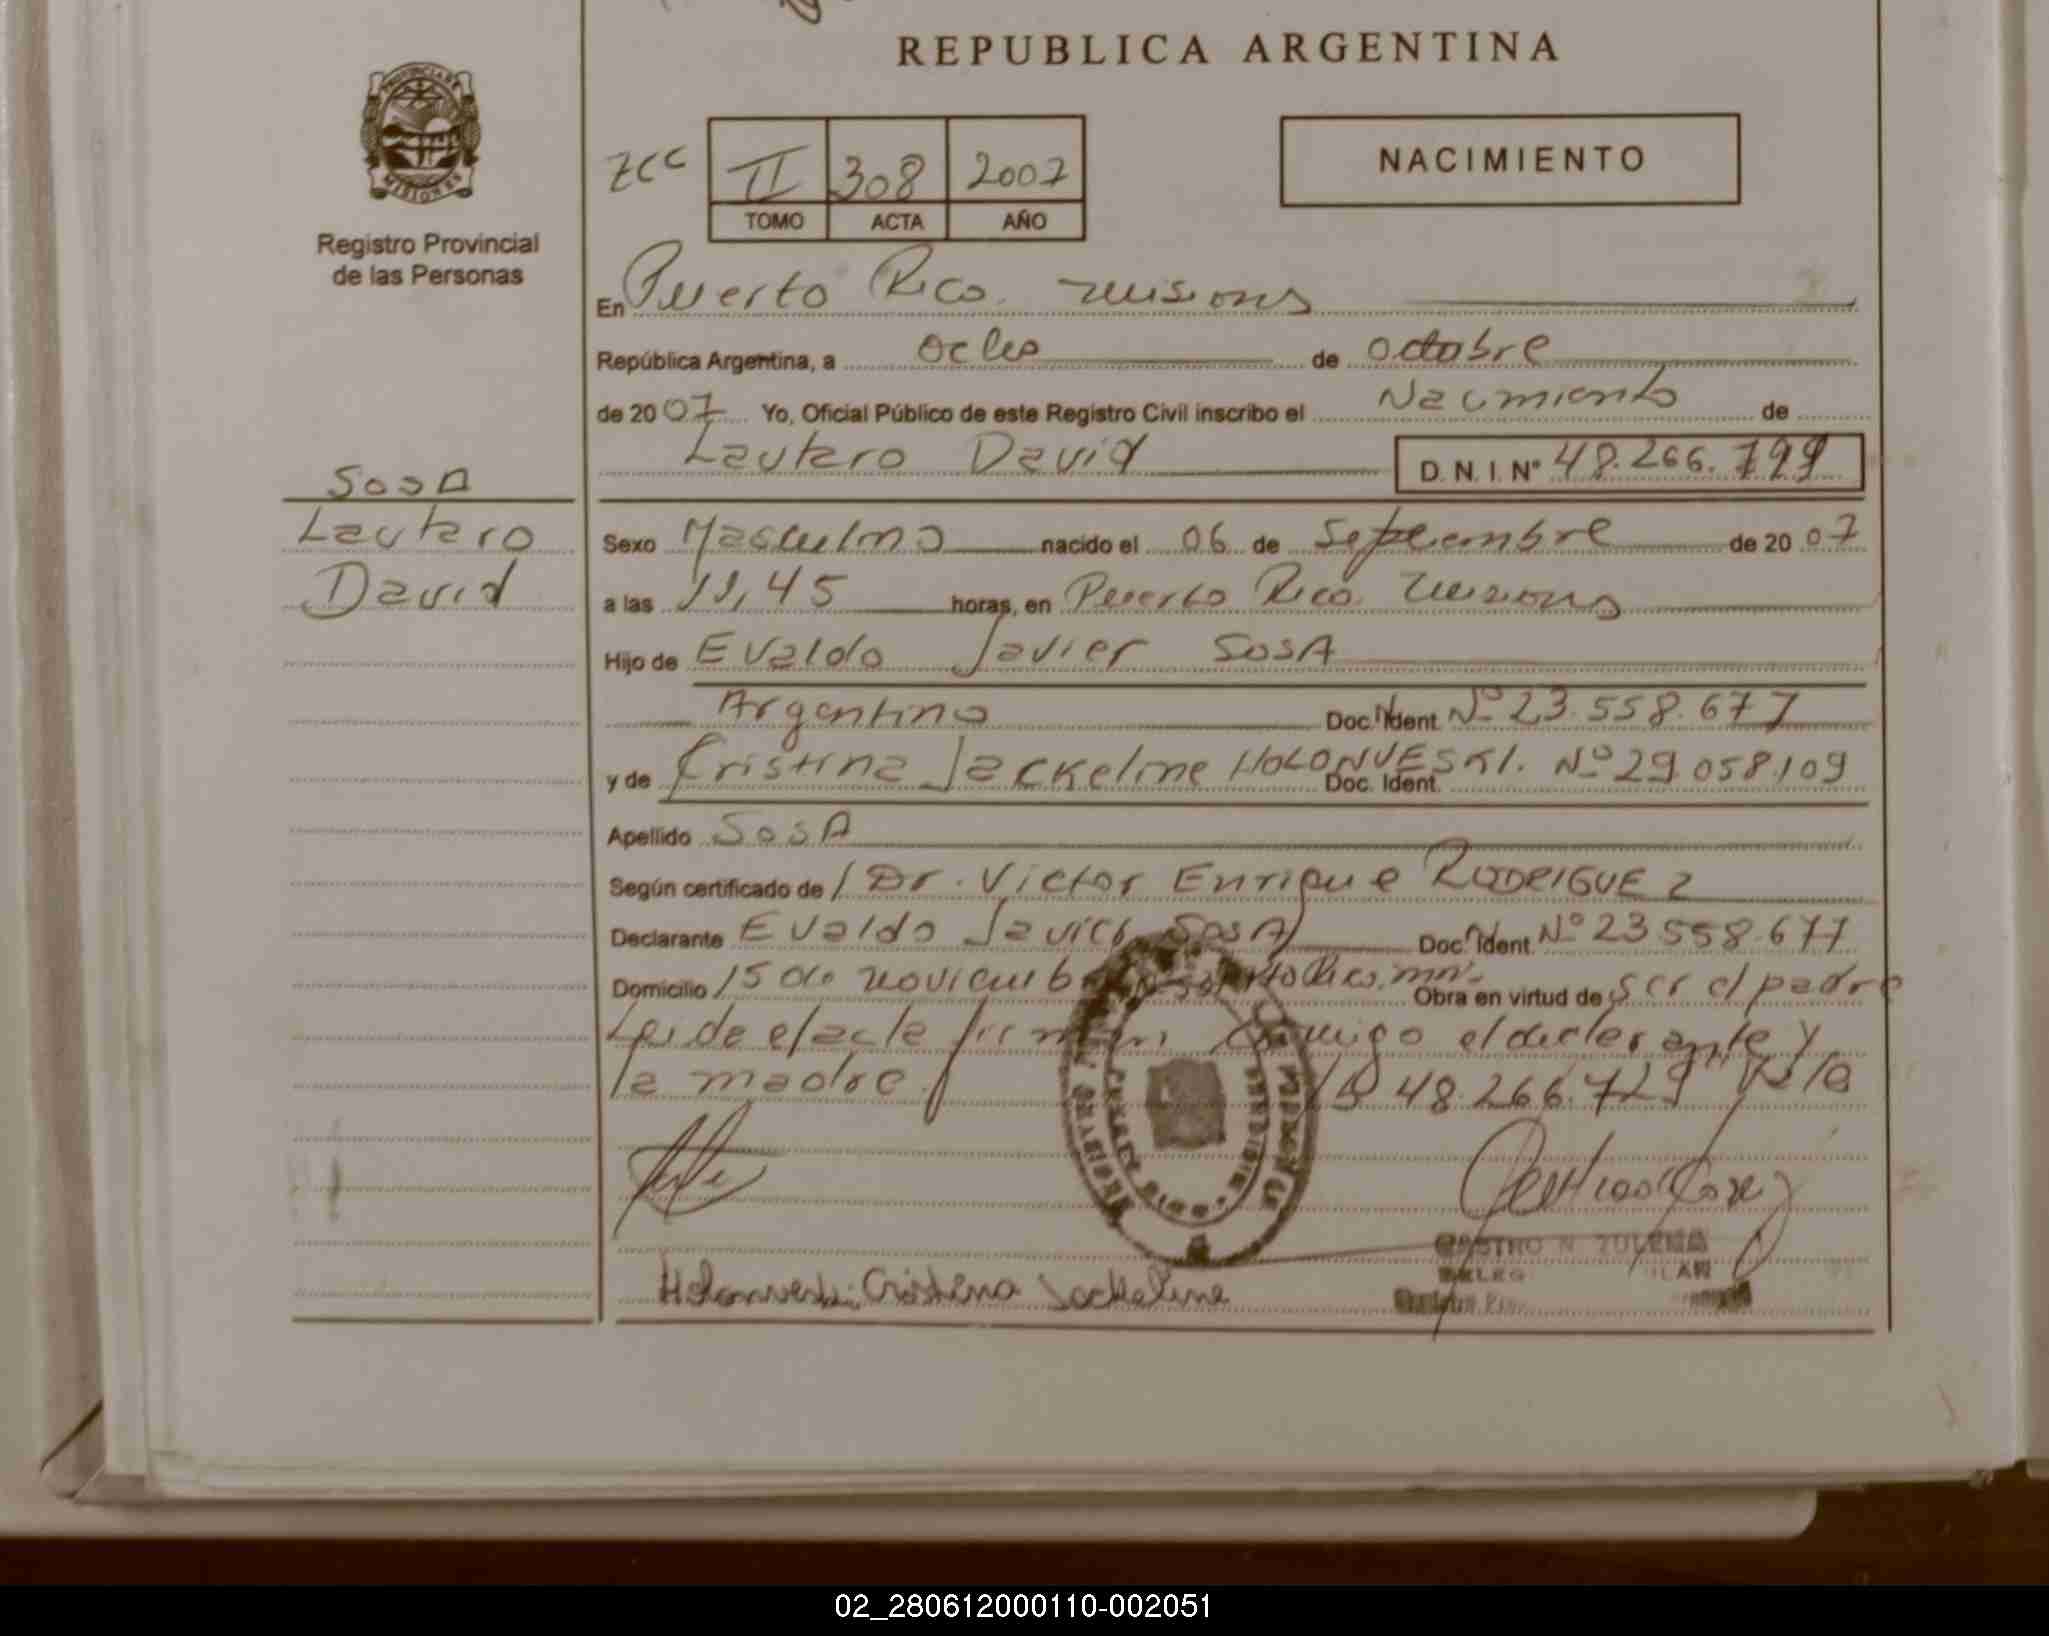 REPUBLICA ARGENTINA
PROVINCIA DE
MISIONES
Registro Provincial
de las Personas
II 308 2007
TOMO ACTA AÑO
NACIMIENTO
En Puerto Rico. Misiones
República Argentina, a ocho de octubre
de 2007 Yo, Oficial Público de este Registro Civil inscribo el Nacimiento de
Lautaro David D. N. I. N° 48.266.729
SOSA
Lautaro
David
Sexo Masculino nacido el 06 de Septiembre de 2007
a las 11,45 horas, en Puerto Rico. Misiones
Hijo de Evaldo Javier SOSA
Argentino Doc. Ident. Nº 23.558.677
y de Cristina Jackeline HOLONVESKI. Doc. Ident. Nº 29.058.109
Apellido SOSA
Según certificado de Dr. Victor Enrique RODRIGUEZ
Declarante Evaldo Javier SOSA Doc. Ident. Nº 23.558.677
Domicilio 15 de noviembre Obra en virtud de ser el padre
Leida el acta firman conmigo el declarante y
la madre. 48.266.729
Cristina Jackeline
CASTRO N. ZULEMA
02_280612000110-002051